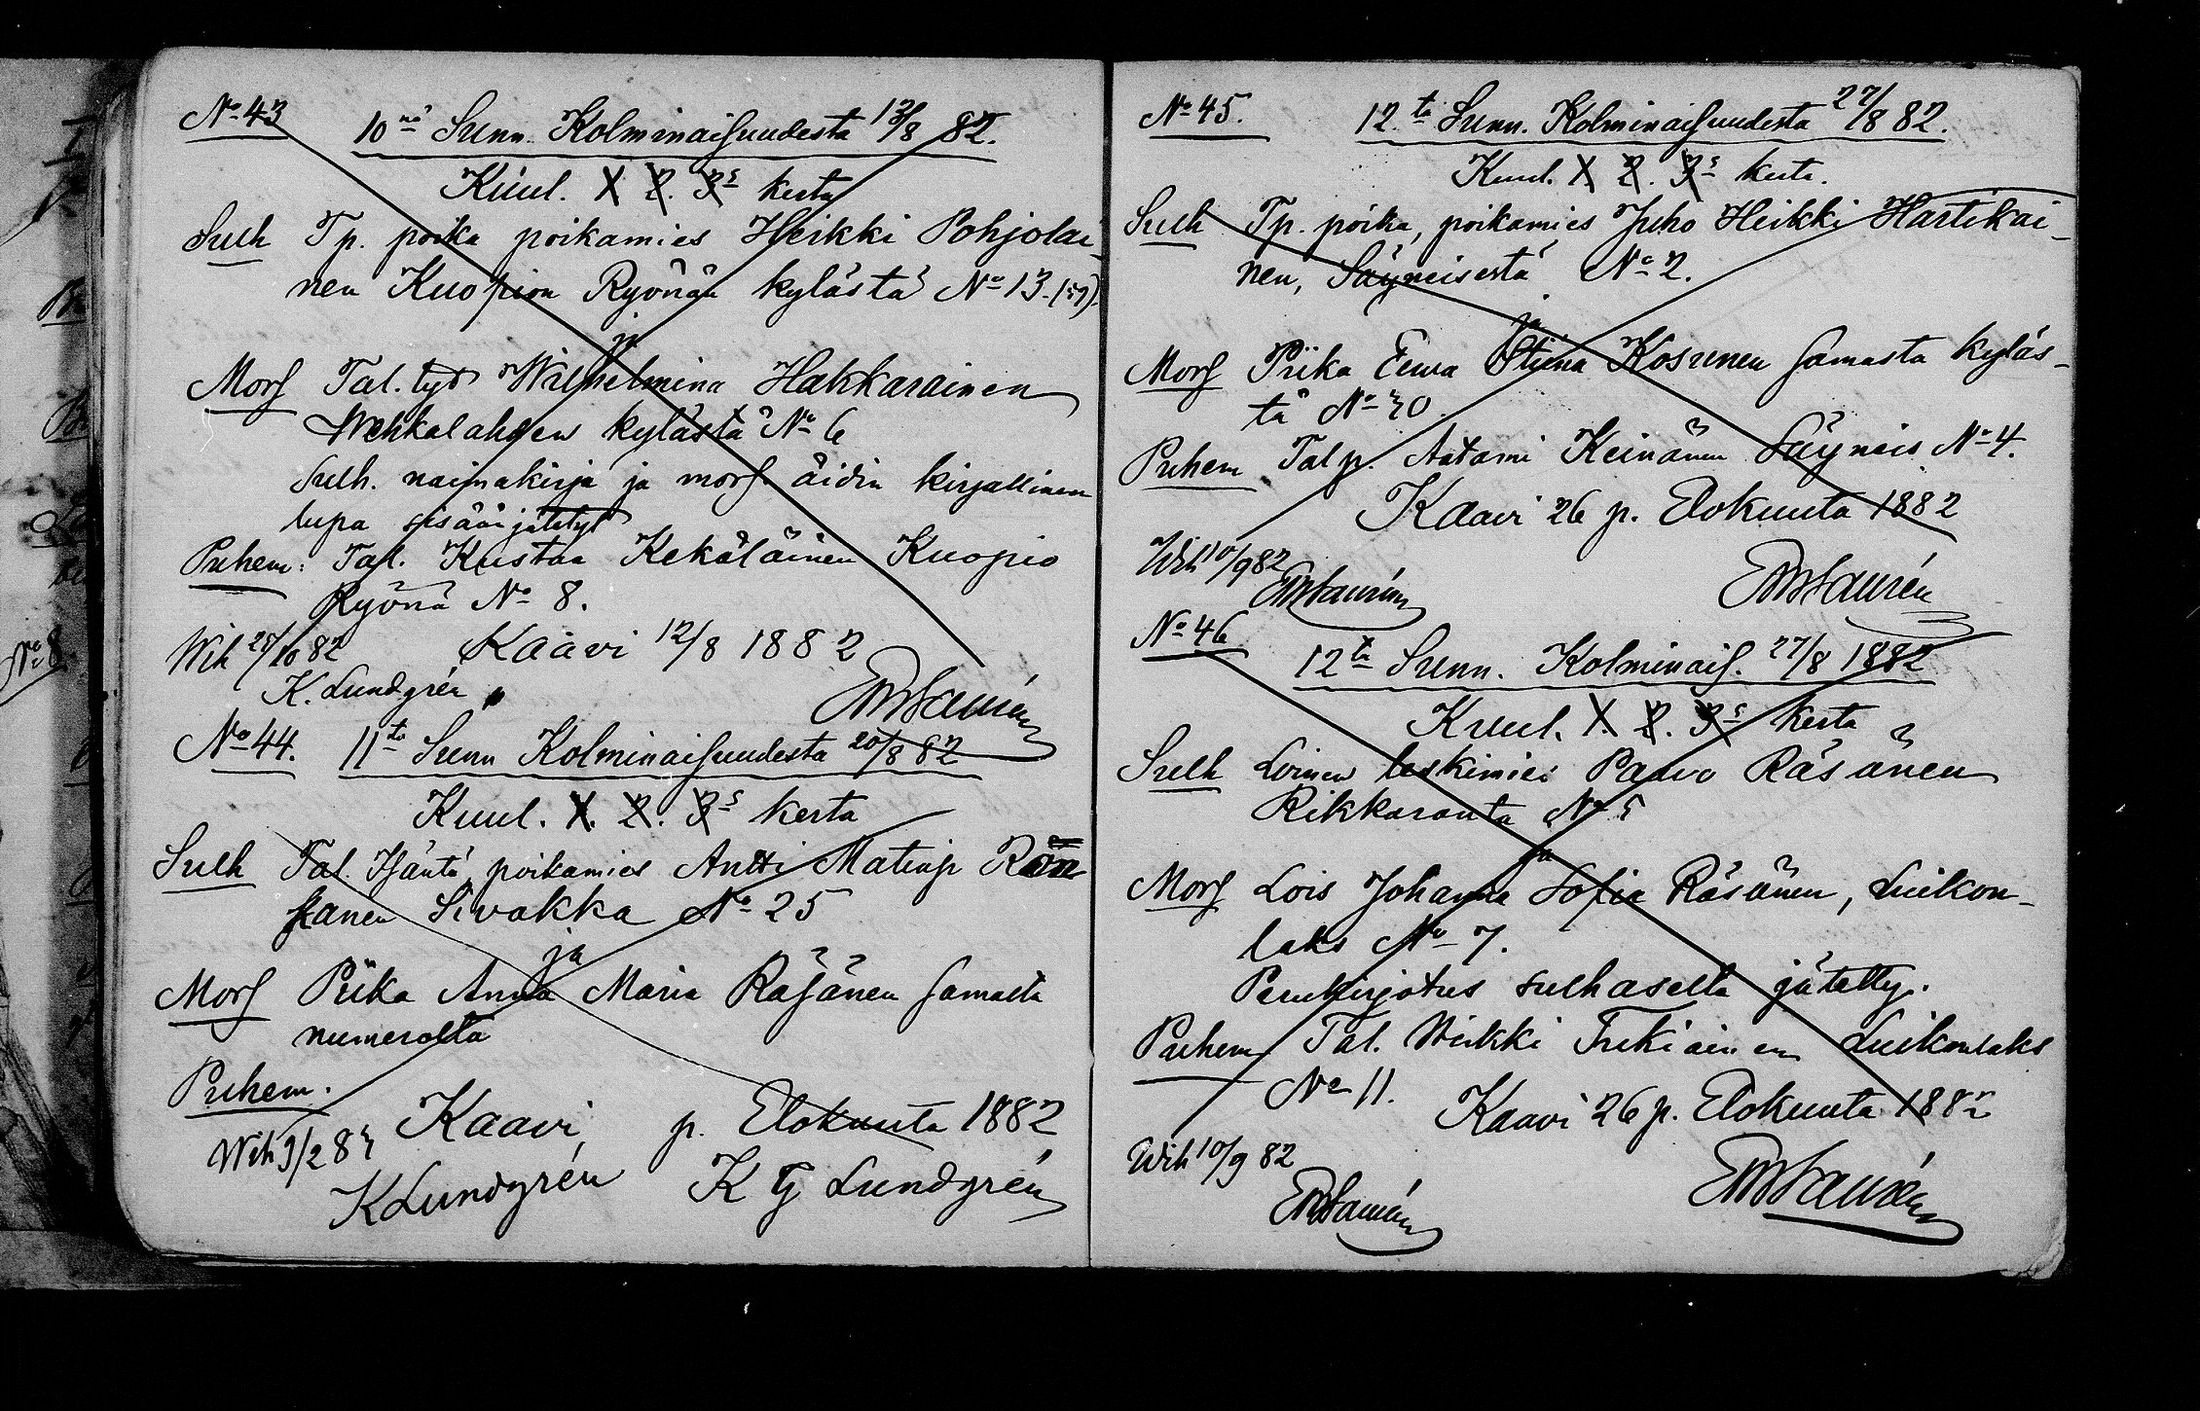 No 43
10nä Sunn. Kolminaisuudesta 13/8 82.
Kuul. 1. 2. 3s kerta
Sulh Tp. poika poikamies Heikki Pohjolai-
nen Kuopion Ryönän kylästä No 13. (59).
ja
Mors Tal. tyt Wilhelmina Hakkarainen
Wehkalahden kylästä No 6
Sulh. naimakirja ja mors äidin kirjallinen
lupa sisäänjätetyt
Puhem: Tal. Kustaa Kekäläinen Kuopio
Ryönä No 8.
Wih 28/10 82 Kaavi 12/8 1882
K. Lundgrén
No 44. 11ta Sunn Kolminaisuudesta 20/8 82
Kuul. 1. 2. 3s kerta
Sulh Tal. Isäntä, poikamies Antti Matinp
sanen Sivakka No 25
ja
Mors Piika Anna Maria Räsänen samasta
numerolta
Puhem.
Kaavi, p. Elokuuta 1882
Wih
K Lundgrén K G Lundgrén
No 45. 12.ta Sunn. Kolminaisuudesta 27/8 82.
Kuul. 1. 2. 3s kerta.
Sulh Tp. poika, poikamies Juho Heikki Hartikai-
nen, Säyneisestä No 2.
ja
Mors Piika Eeva Stiina Kosunen samasta kyläs-
tä No 30.
Puhem Talp. Aatami Keinänen Säyneis No 4.
Kaavi 26 p. Elokuuta 1882
Wih 10/9 82
No 46
12ta Sunn. Kolminais. 27/8 1882
Kuul. 1. 2. 3s kerta
Sulh Loinen leskimies Paavo Räsänen
Rikkaranta No 5
ja
Mors Lois Johanna Sofia Räsänen, Luikon-
laks No 7.
Perukirjotus sulhaselta jätetty.
Puhem Tal. Heikki Tukiainen Luikonlaks
No 11.
Kaavi 26 p. Elokuuta 1882
Wih 10/9 82